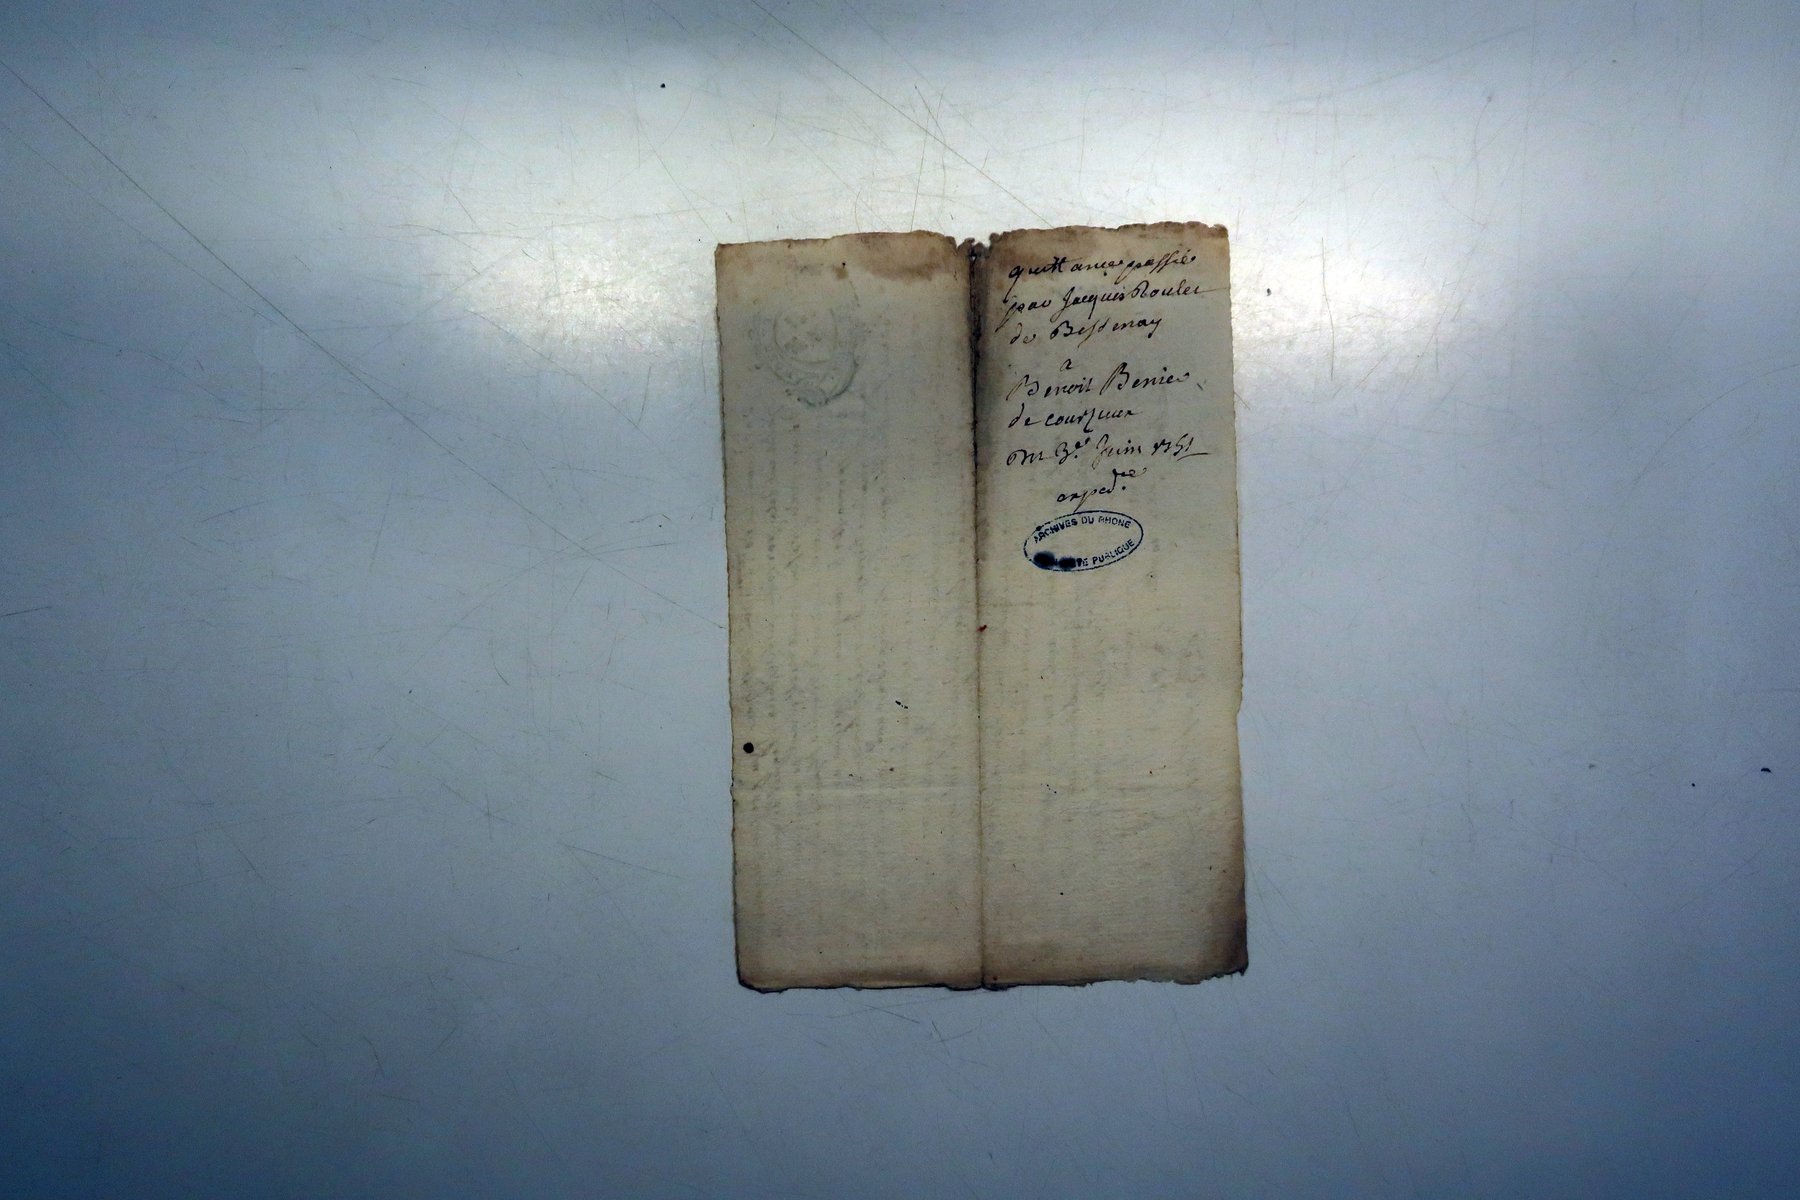 quittance passée
par Jacques Boulet
de Bessenay
a
Benoit Benier
de courzieux
du 3e. Juin 1751
exped.
ARCHIVES DU RHONE
PUBLIQUE